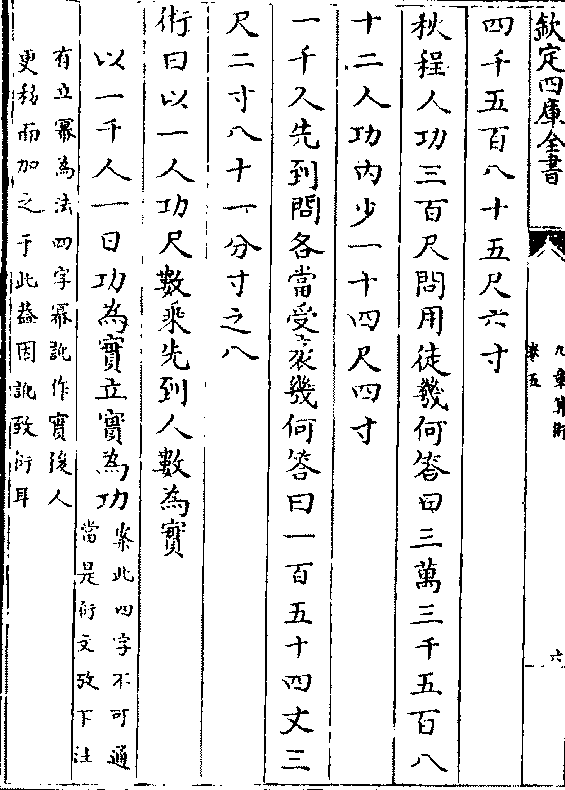 欽定四庫全書
九章算術
卷五
六
四千五百八十五尺六寸
秋程人功三百尺問用徒幾何答曰三萬三千五百八
十二人功內少一十四尺四寸
一千人先到問各當受袤幾何答曰一百五十四丈三
尺二寸八十一分寸之八
術曰以一人功尺數乘先到人數為實
以一千人一日功為實立實為功案此四字不可通
當是衍文攷下注
有立冪為法四字冪訛作實後人
更移而加之于此葢因訛致衍耳